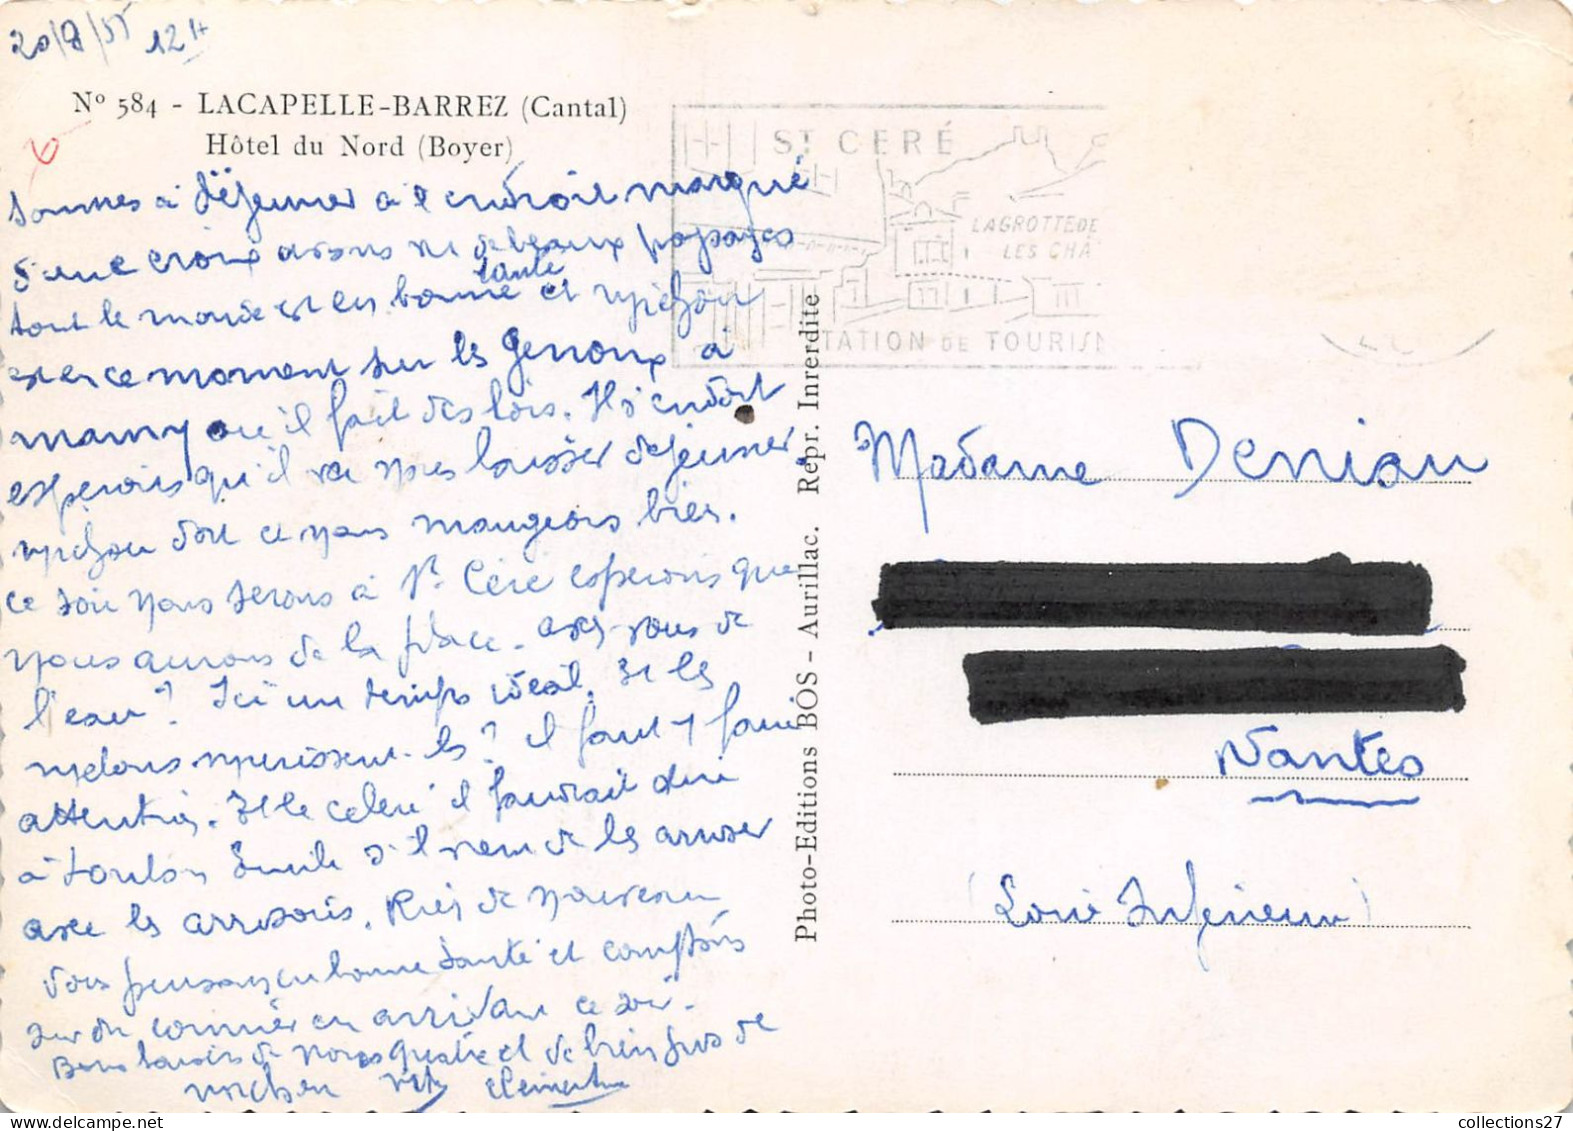 20/8/55 12H
Nº 584 - LACAPELLE-BARREZ (Cantal)
Hôtel du Nord (Boyer)
Sommes à déjeuner à l'endroit marqué
d'une croix avons vu de beaux paysages
tout le monde est en bonne santé et michou
est en ce moment sur les genoux à
mamy où il fait des lois. Il s'endort
esperons qu'il va nous laisser dejeuner.
michou dort et nous mangeons bien.
ce soir nous serons à St Céré esperons que
nous aurons de la place. avez-vous de
l'eau ? Ici un temps idéal. Et les
melons murissent-ils ? il faut y faire
attention. Et le celeri il faudrait dire
à tonton Emile s'il vient de les arroser
avec les arrosoirs. Rien de nouveau
vous pensons en bonne santé et comptons
sur du courrier en arrivant ce soir.
Bons baisers de nous quatre et de bien gros de
michou
Clementine
ST CERÉ
LA GROTTE DE
LES CHÂ
STATION DE TOURISM
Photo-Editions BOS - Aurillac. Repr. Inrerdite
Madame Deniau
Nantes
(Loire Inférieure)
collections27